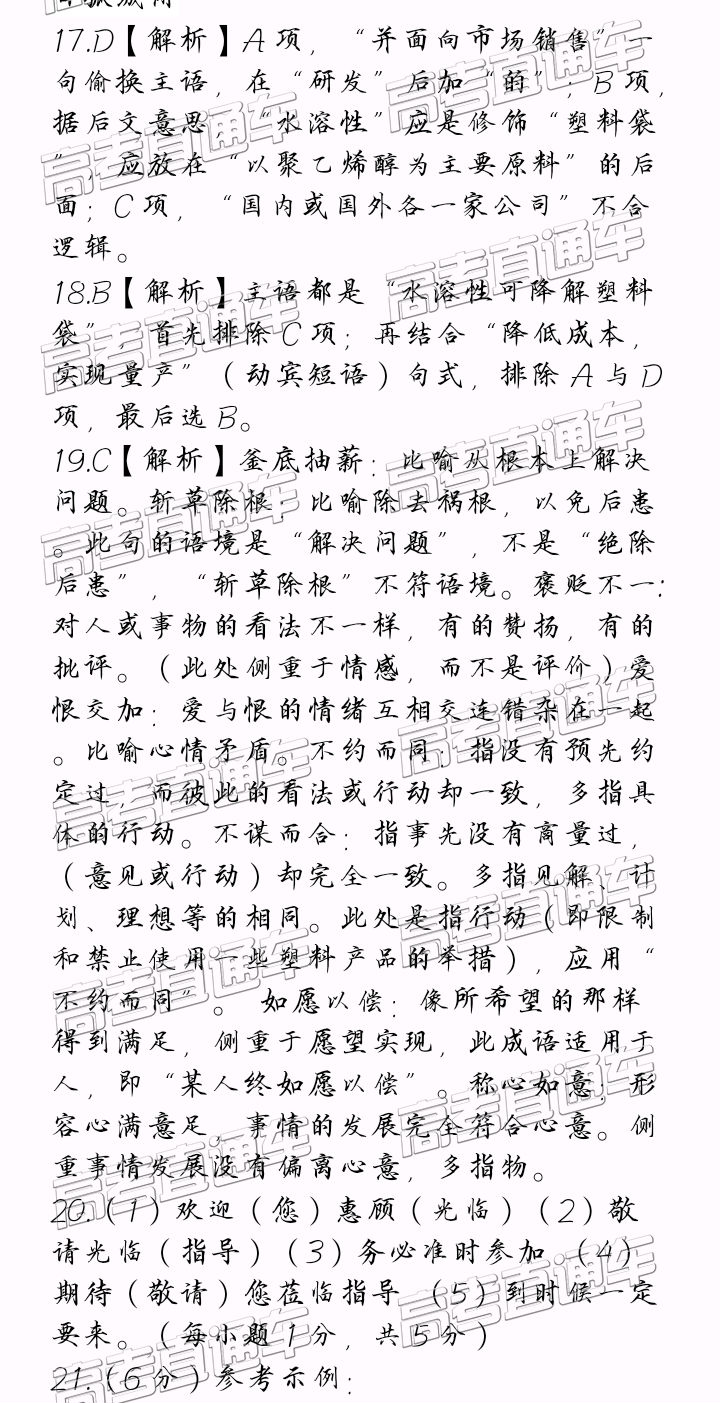 17.D【解析】A项，“并面向市场销售”一
句偷换主语，在“研发”后加“的”；B项，
据后文意思，“水溶性”应是修饰“塑料袋
”，应放在“以聚乙烯醇为主要原料”的后
面；C项，“国内或国外各一家公司”不合
逻辑。
18.B【解析】主语都是“水溶性可降解塑料
袋”，首先排除C项；再结合“降低成本，
实现量产”（动宾短语）句式，排除A与D
项，最后选B。
19.C【解析】釜底抽薪：比喻从根本上解决
问题。斩草除根：比喻除去祸根，以免后患
。此句的语境是“解决问题”，不是“绝除
后患”，“斩草除根”不符语境。褒贬不一：
对人或事物的看法不一样，有的赞扬，有的
批评。（此处侧重于情感，而不是评价）爱
恨交加：爱与恨的情绪互相交连错杂在一起
。比喻心情矛盾。不约而同：指没有预先约
定过，而彼此的看法或行动却一致，多指具
体的行动。不谋而合：指事先没有商量过，
（意见或行动）却完全一致。多指见解、计
划、理想等的相同。此处是指行动（即限制
和禁止使用一些塑料产品的举措），应用“
不约而同”。 如愿以偿：像所希望的那样
得到满足，侧重于愿望实现，此成语适用于
人，即“某人终如愿以偿”。称心如意：形
容心满意足，事情的发展完全符合心意。侧
重事情发展没有偏离心意，多指物。
20.（1）欢迎（您）惠顾（光临）（2）敬
请光临（指导）（3）务必准时参加 （4）
期待（敬请）您莅临指导 （5）到时候一定
要来。（每小题1分，共5分）
21.（6分）参考示例：
高考直通车